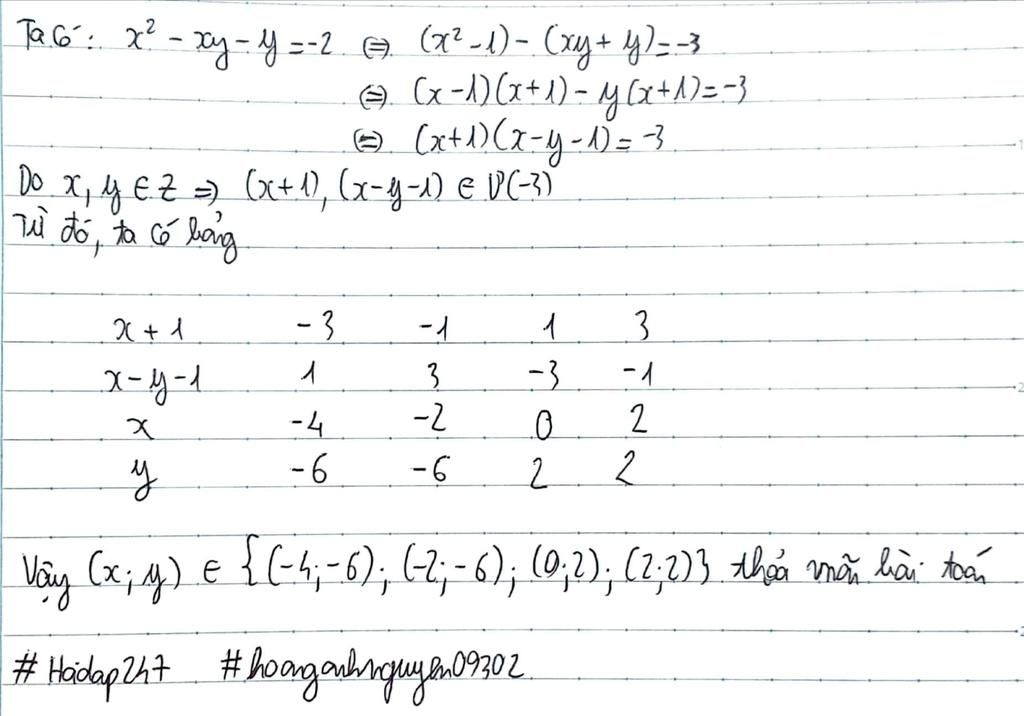 Ta có: x² - xy - y = -2 ⇔ (x² - 1) - (xy + y) = -3
⇔ (x - 1)(x + 1) - y(x + 1) = -3
⇔ (x + 1)(x - y - 1) = -3
Do x, y ∈ Z ⇒ (x + 1), (x - y - 1) ∈ Ư(-3)
Từ đó, ta có bảng
x + 1 -3 -1 1 3
x - y - 1 1 3 -3 -1
x -4 -2 0 2
y -6 -6 2 2
Vậy (x; y) ∈ {(-4; -6); (-2; -6); (0; 2); (2; 2)} thỏa mãn bài toán
#Hoidap247 #hoanganhnguyen09302